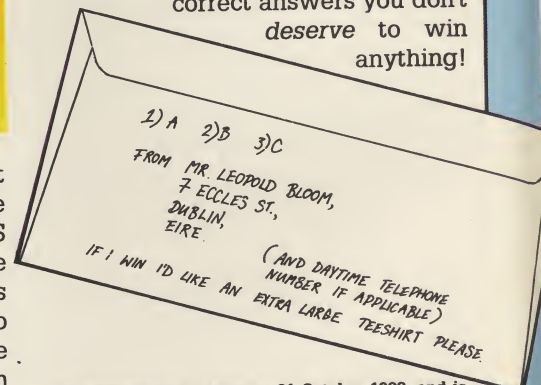 correct answers you don't
deserve to win
anything!
1) A 2) B 3) C
FROM MR. LEOPOLD BLOOM,
7 ECCLES ST.,
DUBLIN,
EIRE.
(AND DAYTIME TELEPHONE
NUMBER IF APPLICABLE)
IF I WIN I'D LIKE AN EXTRA LARGE TEESHIRT PLEASE.